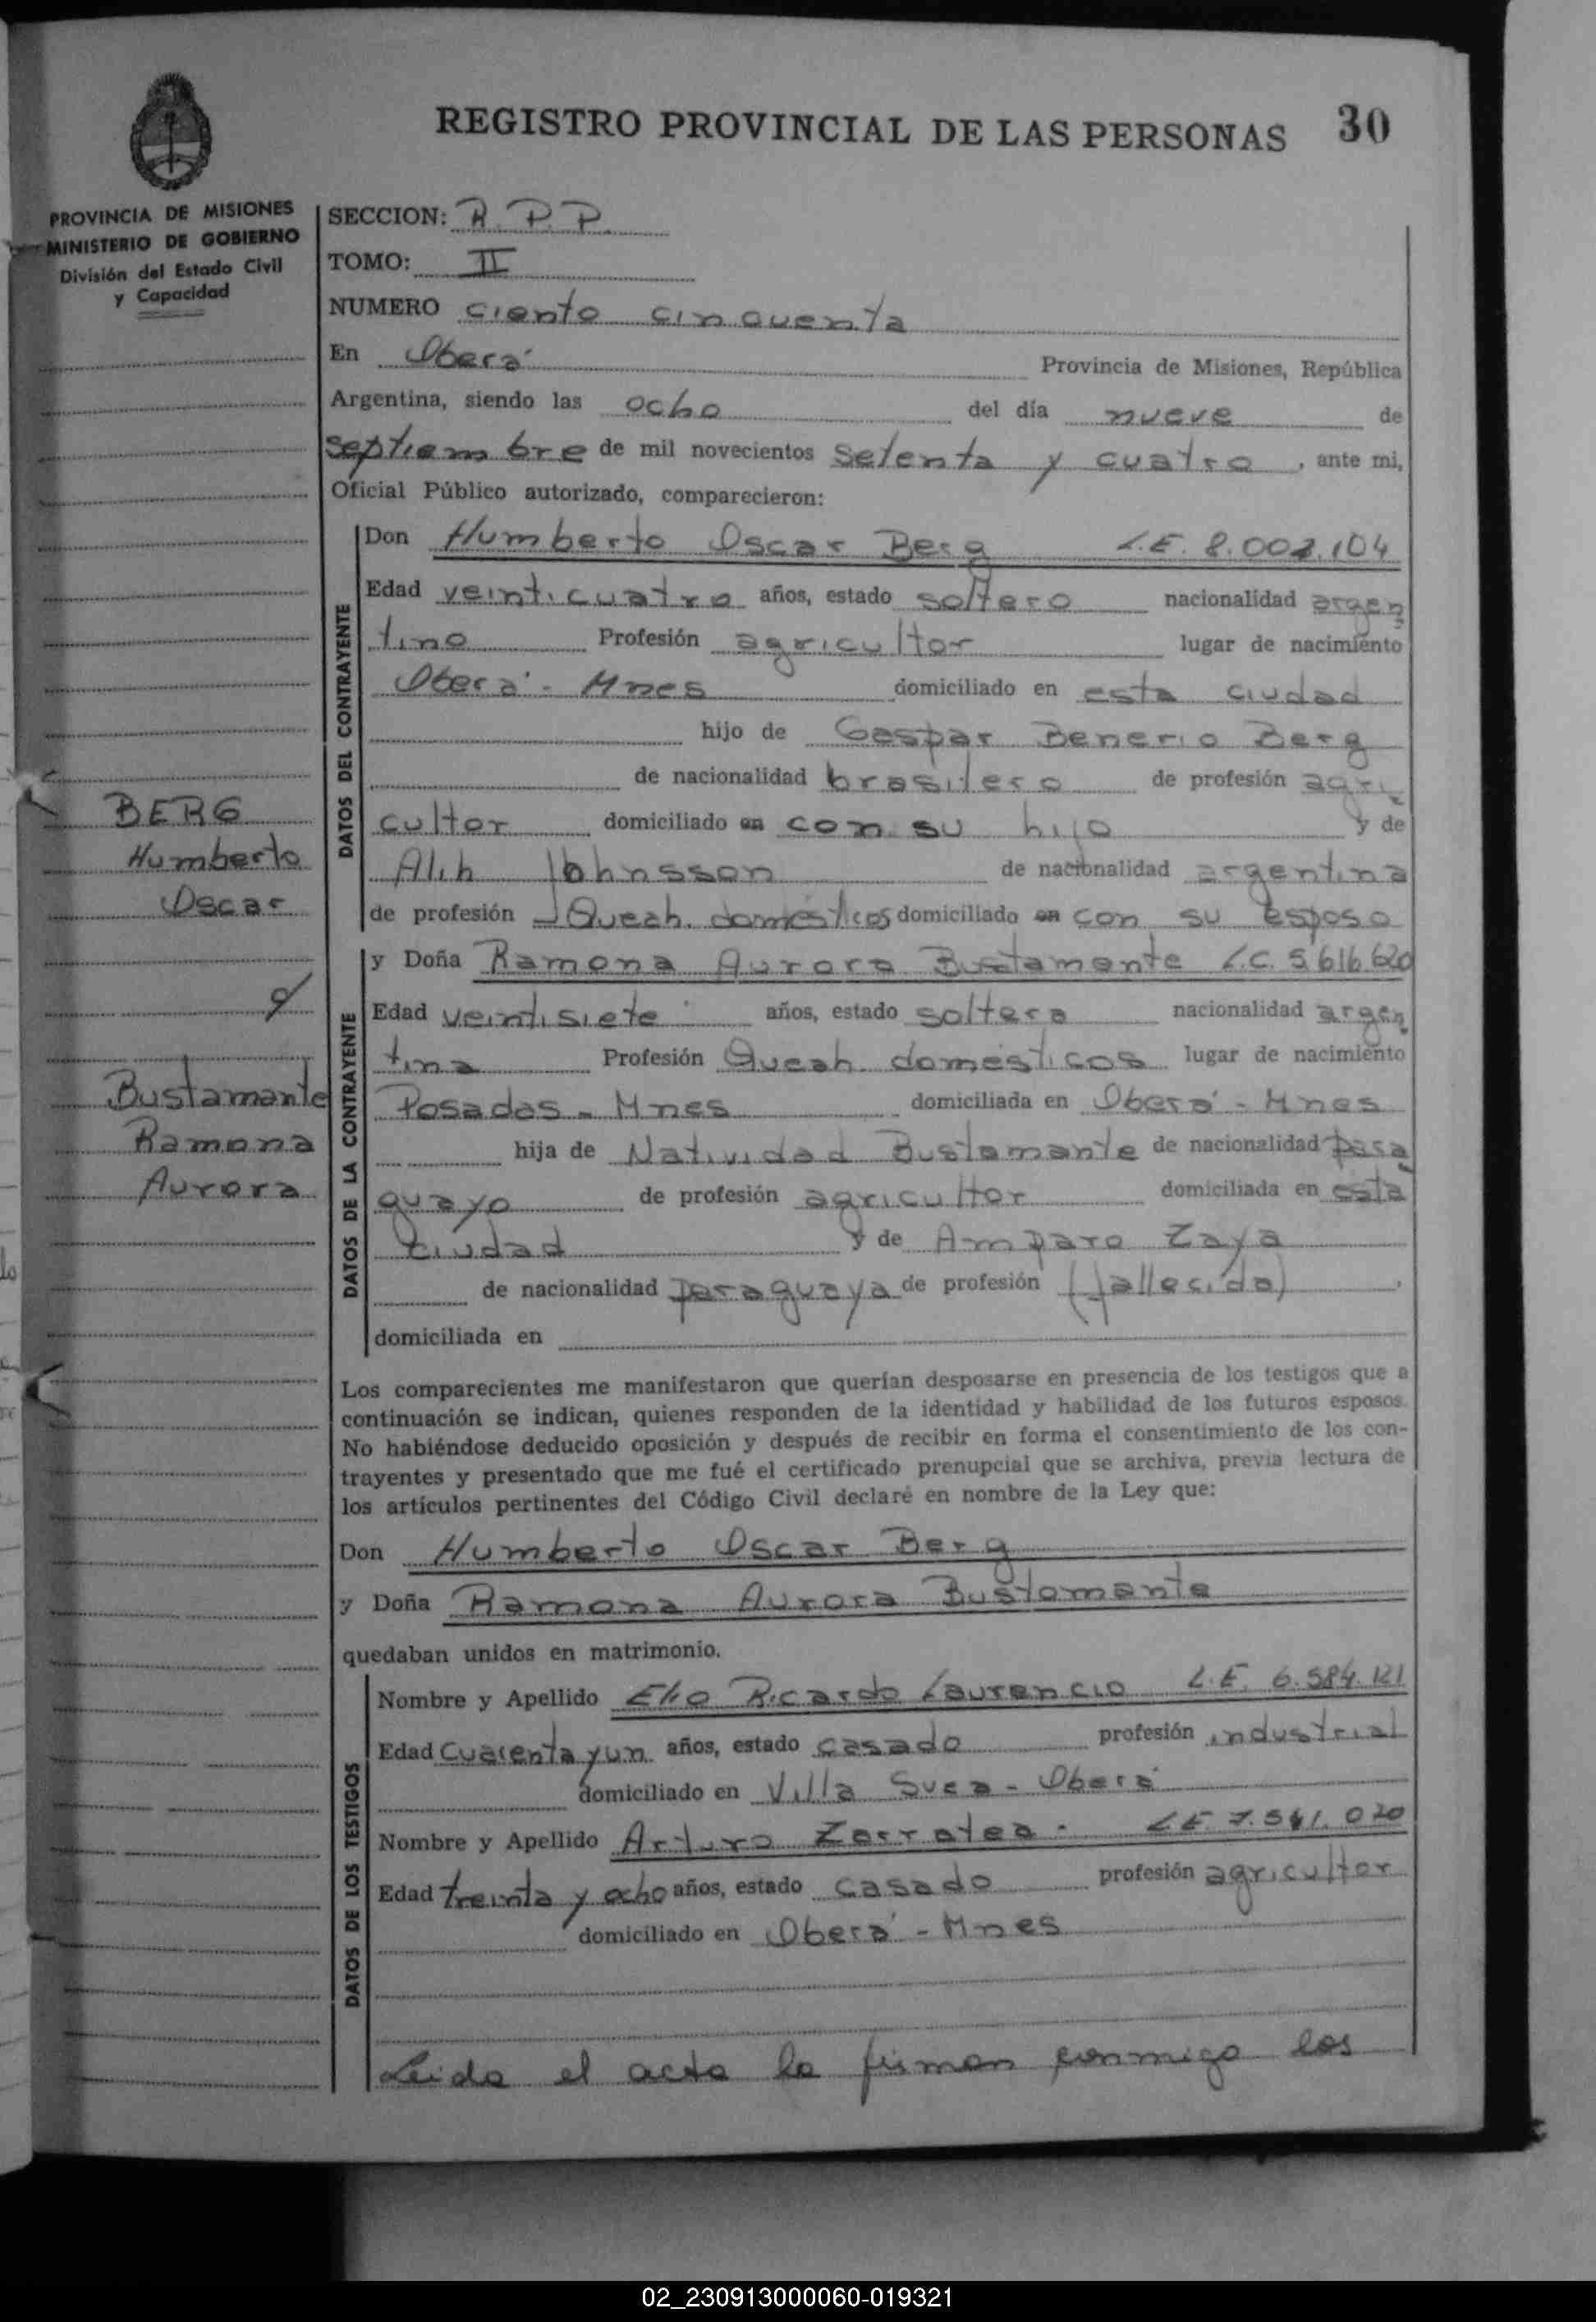 REGISTRO PROVINCIAL DE LAS PERSONAS 30
PROVINCIA DE MISIONES
MINISTERIO DE GOBIERNO
División del Estado Civil
y Capacidad
SECCION: R. P. P.
TOMO: II
NUMERO ciento cincuenta
En Oberá Provincia de Misiones, República
Argentina, siendo las ocho del día nueve de
septiembre de mil novecientos setenta y cuatro, ante mi,
Oficial Público autorizado, comparecieron:
DATOS DEL CONTRAYENTE
Don Humberto Oscar Berg L.E. 8.002.104
Edad veinticuatro años, estado soltero nacionalidad argen
tino Profesión agricultor lugar de nacimiento
Oberá - Mnes domiciliado en esta ciudad
hijo de Gaspar Benerio Berg
de nacionalidad brasilero de profesión agri
cultor domiciliado en con su hijo y de
Alih Johnsson de nacionalidad argentina
de profesión Queah. domésticos domiciliado en con su esposo
BERG
Humberto
Oscar
c/
Bustamante
Ramona
Aurora
DATOS DE LA CONTRAYENTE
y Doña Ramona Aurora Bustamante L.C. 5.616.620
Edad veintisiete años, estado soltera nacionalidad argen
tina Profesión Queah. domésticos lugar de nacimiento
Posadas - Mnes domiciliada en Oberá - Mnes
hija de Natividad Bustamante de nacionalidad para
guayo de profesión agricultor domiciliada en esta
ciudad y de Amparo Zaya
de nacionalidad paraguaya de profesión (fallecida)
domiciliada en
Los comparecientes me manifestaron que querían desposarse en presencia de los testigos que a
continuación se indican, quienes responden de la identidad y habilidad de los futuros esposos.
No habiéndose deducido oposición y después de recibir en forma el consentimiento de los con-
trayentes y presentado que me fué el certificado prenupcial que se archiva, previa lectura de
los artículos pertinentes del Código Civil declaré en nombre de la Ley que:
Don Humberto Oscar Berg
y Doña Ramona Aurora Bustamante
quedaban unidos en matrimonio.
DATOS DE LOS TESTIGOS
Nombre y Apellido Elio Ricardo Laurencio L.E. 6.584.121
Edad Cuarenta y un años, estado casado profesión industrial
domiciliado en Villa Suea - Oberá
Nombre y Apellido Arturo Zarratea - L.E. 7.541.020
Edad treinta y ocho años, estado casado profesión agricultor
domiciliado en Oberá - Mnes
Leida el acta la firman conmigo los
02_230913000060-019321